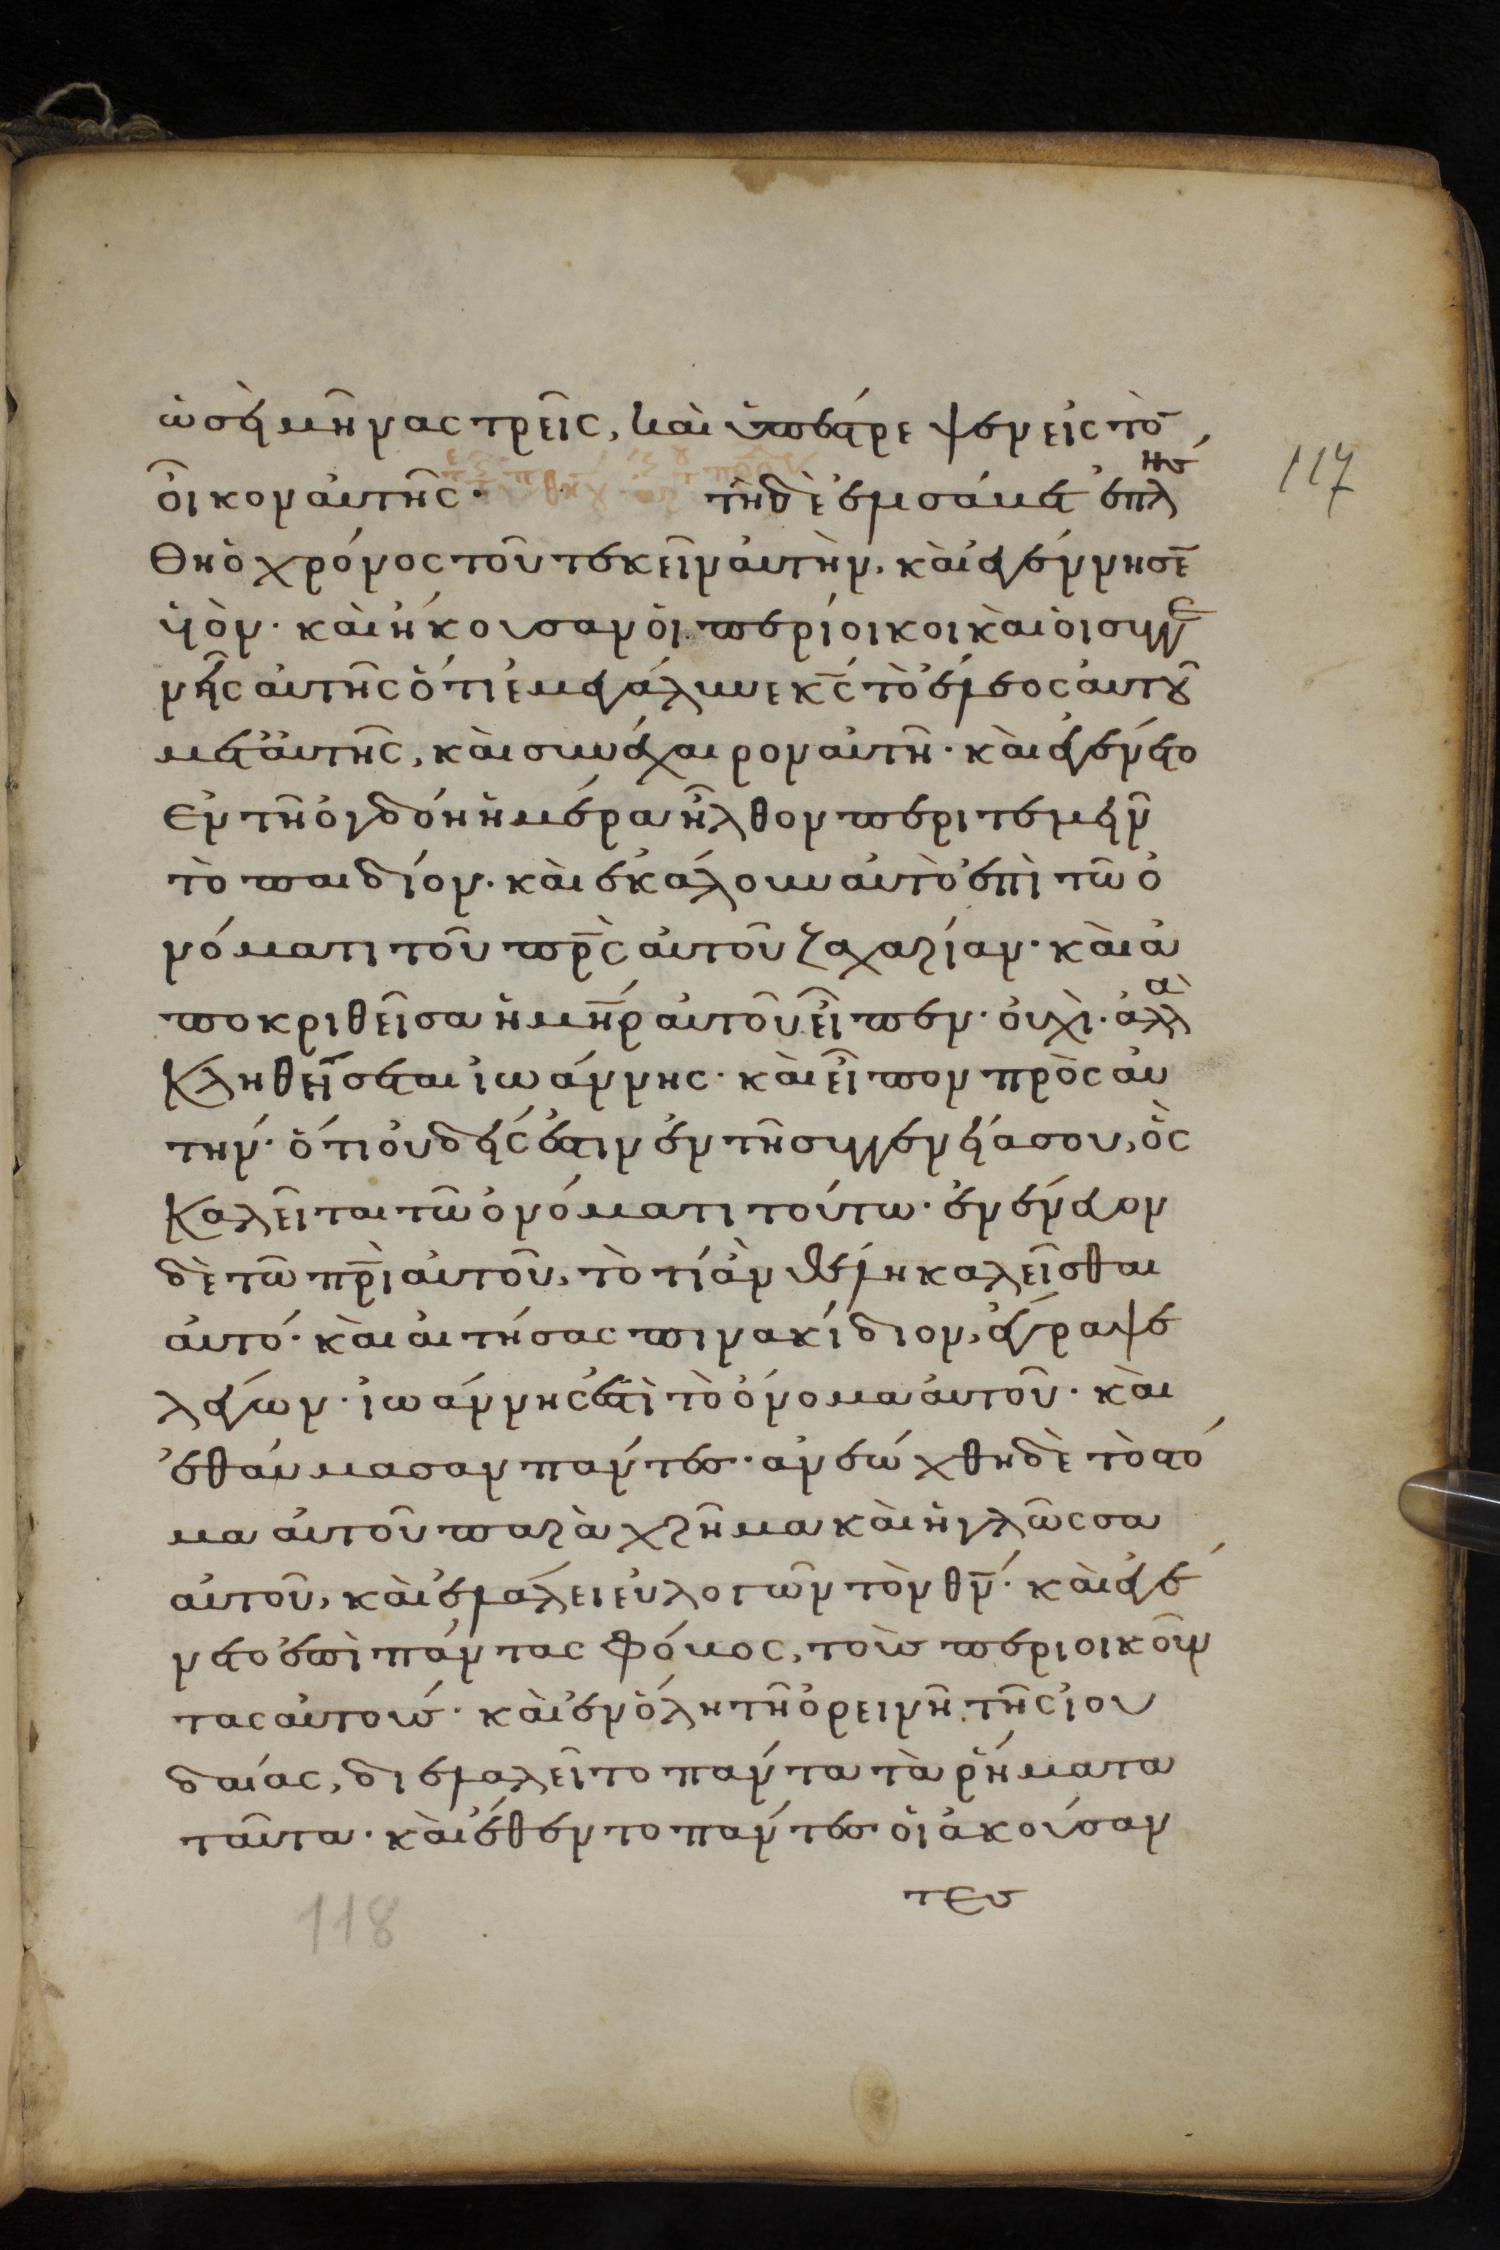 ὡσεὶ μῆνας τρεῖς, καὶ ὑπέστρεψεν εἰς τὸ(ν)
οἶκον αὐτῆς· τῇ δὲ ἐλισάβετ ἐπλήσ
θη ὁ χρόνος τοῦ τεκεῖν αὐτὴν, καὶ ἐγέννησε̄
υἱὸν· καὶ ἤκουσαν οἱ περίοικοι καὶ οἱ συγγε
νῆς αὐτῆς ὅτι ἐμεγάλυνε κ̅ς̅ τὸ ἔλεος αὐτοῦ
μετ' αὐτῆς, καὶ συνέχαιρον αὐτῆ· καὶ ἐγένετο
Εν τῆ ὀγδόη ἡμέρα ἦλθον περιτεμεῖν
τὸ παιδίον· καὶ ἐκάλουν αὐτὸ ἐπὶ τῶ ὀ
νόματι τοῦ π̅ρ̅ς̅ αὐτοῦ ζαχαρίαν· καὶ ἀ
ποκριθεῖσα ἡ μ̅η̅ρ̅ αὐτοῦ εἶπεν· οὐχὶ· ἀλλὰ
Κληθήσεται ἰωάννης· καὶ εἶπον πρὸς αὐ
τήν· ὅτι οὐδείς ἐστιν ἐν τῆ συγγενείᾳ σου, ὃς
Καλεῖται τῶ ὀνόματι τούτω· ἐνένευον
δὲ τῶ π̅ρ̅ὶ αὐτοῦ, τὸ τί ἂν θέλη καλεῖσθαι
αὐτό· καὶ αἰτήσας πινακίδιον, ἔγραψε
λέγων· ἰωάννης ἐστὶ τὸ ὄνομα αὐτοῦ· καὶ
ἐθαύμασαν πάντες· ἀνεώχθη δὲ τὸ στό
μα αὐτοῦ παραχρῆμα καὶ ἡ γλῶσσα
αὐτοῦ, καὶ ἐλάλει εὐλογῶν τὸν θ̅ν̅· καὶ ἐγέ
νετο ἐπὶ πάντας φόβος, τοὺς περιοικοῦν
τας αὐτούς· καὶ ἐν ὅλη τῆ ὀρεινῆ τῆς ἰου
δαίας, διελαλεῖτο πάντα τὰ ῥήματα
ταῦτα· καὶ ἔθεντο πάντες οἱ ἀκούσαν
τες
117
118